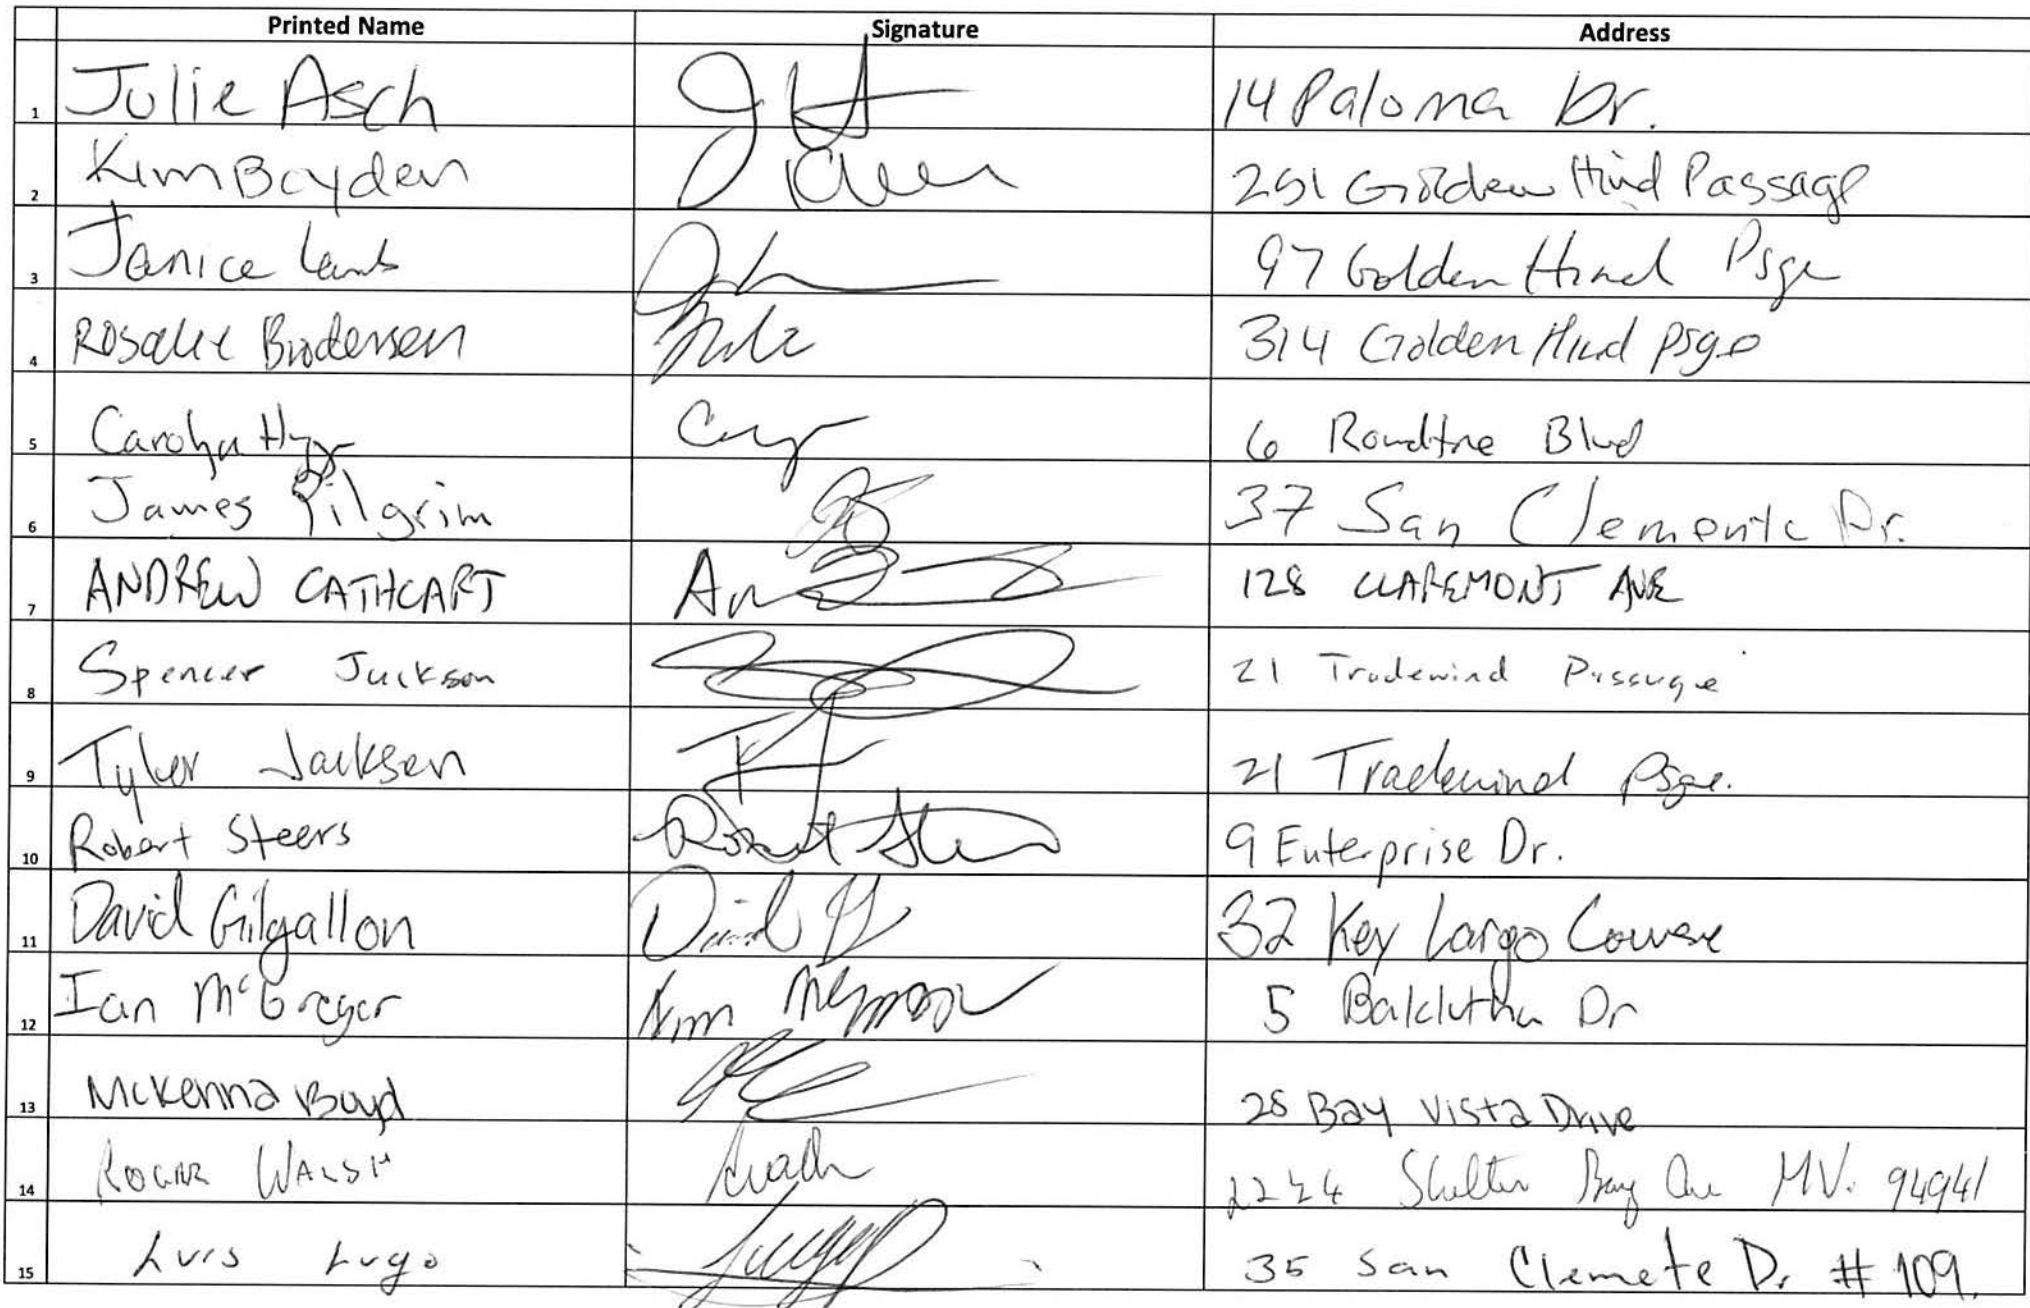 Printed Name Signature Address
1 Julie Asch 14 Paloma Dr.
2 Kim Boyden 251 Golden Hind Passage
3 Janice Lamb 97 Golden Hind Psge
4 Rosalie Brodersen 314 Golden Hind psge
5 Carolyn 6 Roundtree Blvd
6 James Pilgrim 37 San Clemente Dr.
7 ANDREW CATHCART 128 CLAREMONT AVE
8 Spencer Jackson 21 Tradewind Passage
9 Tyler Jackson 21 Tradewind Psge.
10 Robert Steers Robert 9 Enterprise Dr.
11 David Gilgallon David 32 Key Largo Course
12 Ian McGregor 5 Balclutha Dr
13 McKenna Boyd 28 Bay Vista Drive
14 ROGER WALSH Shelter Bay Ave MV. 94941
15 Luis Lugo 35 San Clemete Dr # 109.